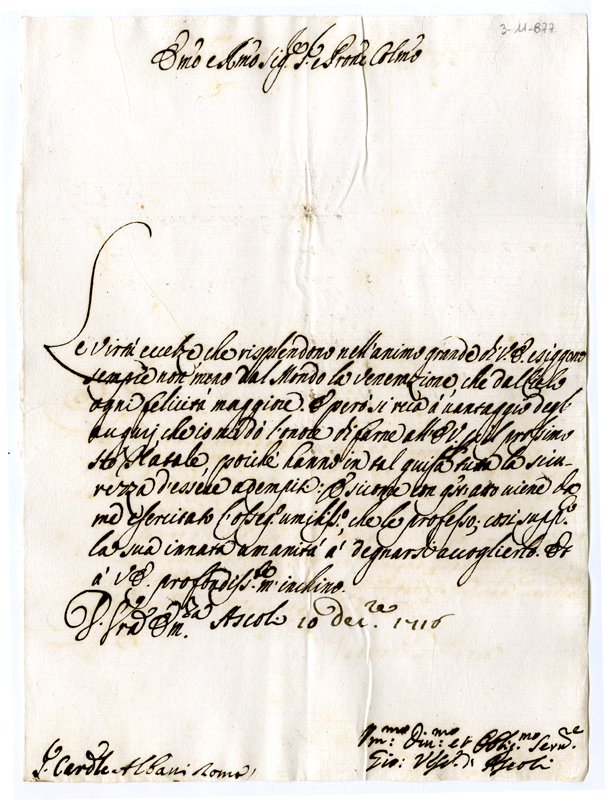 3-11-877
Emo e Rmo Sig.r S.r e Prone Colmo
Le virtù eccelse che risplendono nell'animo grande di V.E. esiggono
sempre non meno dal Mondo la venerazione, che dal Cielo
ogni felicità maggiore. E però si reca à vantaggio degl'
augurj che io mi dò l'onore di farne all'E.V. pel prossimo
Sto Natale, poiché hanno in tal guisa tutta la sicu-
rezza d'essere adempiti: E siccome con qsto atto viene da
me esercitato l'osseq.o umiliss.o, che le professo; così supp.co
la sua innata umanità à degnarsi accoglierlo. Et
à V.E. profondiss.te m'inchino.
D. V.ra Em.za Ascoli 10 Dec.re 1716
S.r Cardle Albani Roma
Um:mo Div:mo et Obblig.mo Serv.e
Gio: Vesc.o di Ascoli